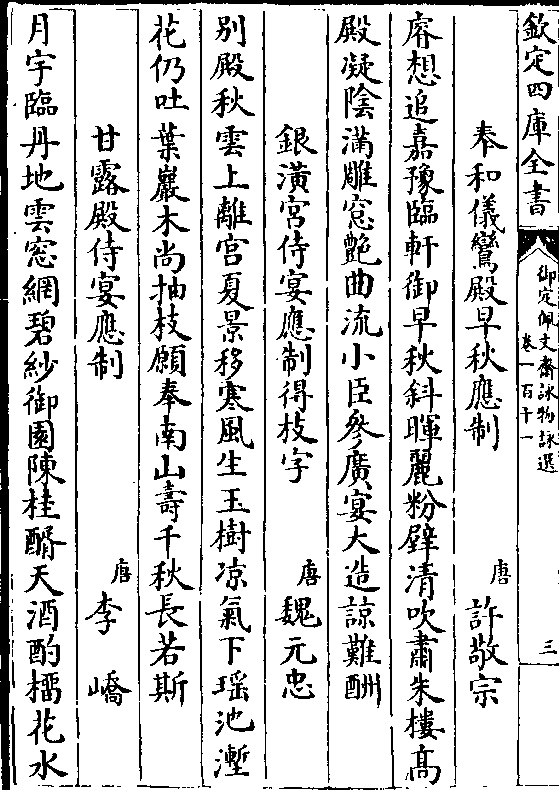 欽定四庫全書
御定佩文齋詠物詩選
卷一百十一
三
奉和儀鸞殿早秋應制
唐 許敬宗
睿想追嘉豫臨軒御早秋斜暉麗粉壁清吹肅朱樓高
殿凝陰滿雕窓艶曲流小臣參廣宴大造諒難酬
銀潢宮侍宴應制得枝字
唐 魏元忠
别殿秋雲上離宮夏景移寒風生玉樹凉氣下瑶池塹
花仍吐葉巖木尚抽枝願奉南山壽千秋長若斯
甘露殿侍宴應制
唐 李嶠
月宇臨丹地雲窓網碧紗御園陳桂醑天酒酌榴花水